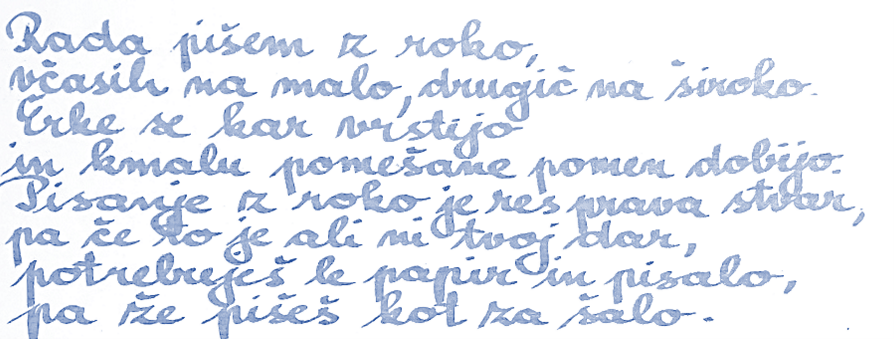 Rada pišem z roko,
včasih na malo, drugič na široko.
Črke se kar vrstijo
in kmalu pomešane pomen dobijo.
Pisanje z roko je res prava stvar,
pa če to je ali ni tvoj dar,
potrebuješ le papir in pisalo,
pa že pišeš kot za šalo.